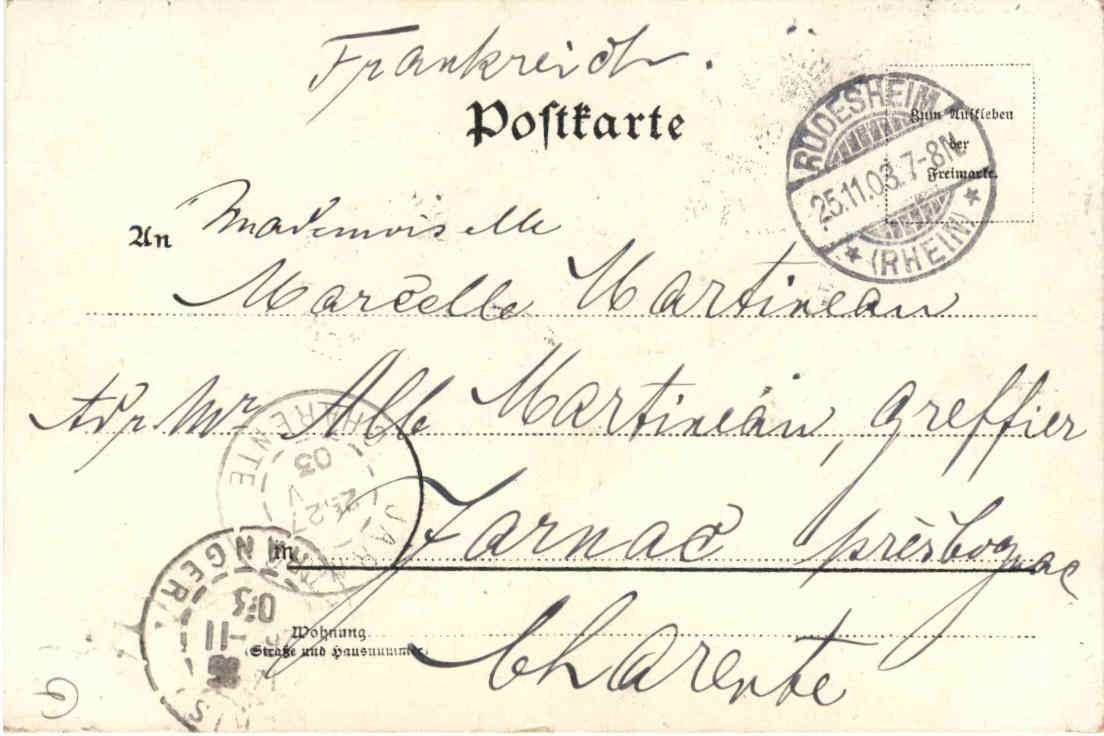 Frankreich.
Postkarte
Zum Aufkleben
der
Freimarke.
RÜDESHEIM
25.11.03.7-8N.
* (RHEIN) *
An Mademoiselle
Marcelle Martineau
Mr Alb Martineau, greffier
CHARENTE
03
JARN
in Jarnac près Cognac
ETRANGER
11
03
Wohnung
(Straße und Hausnummer)
Charente